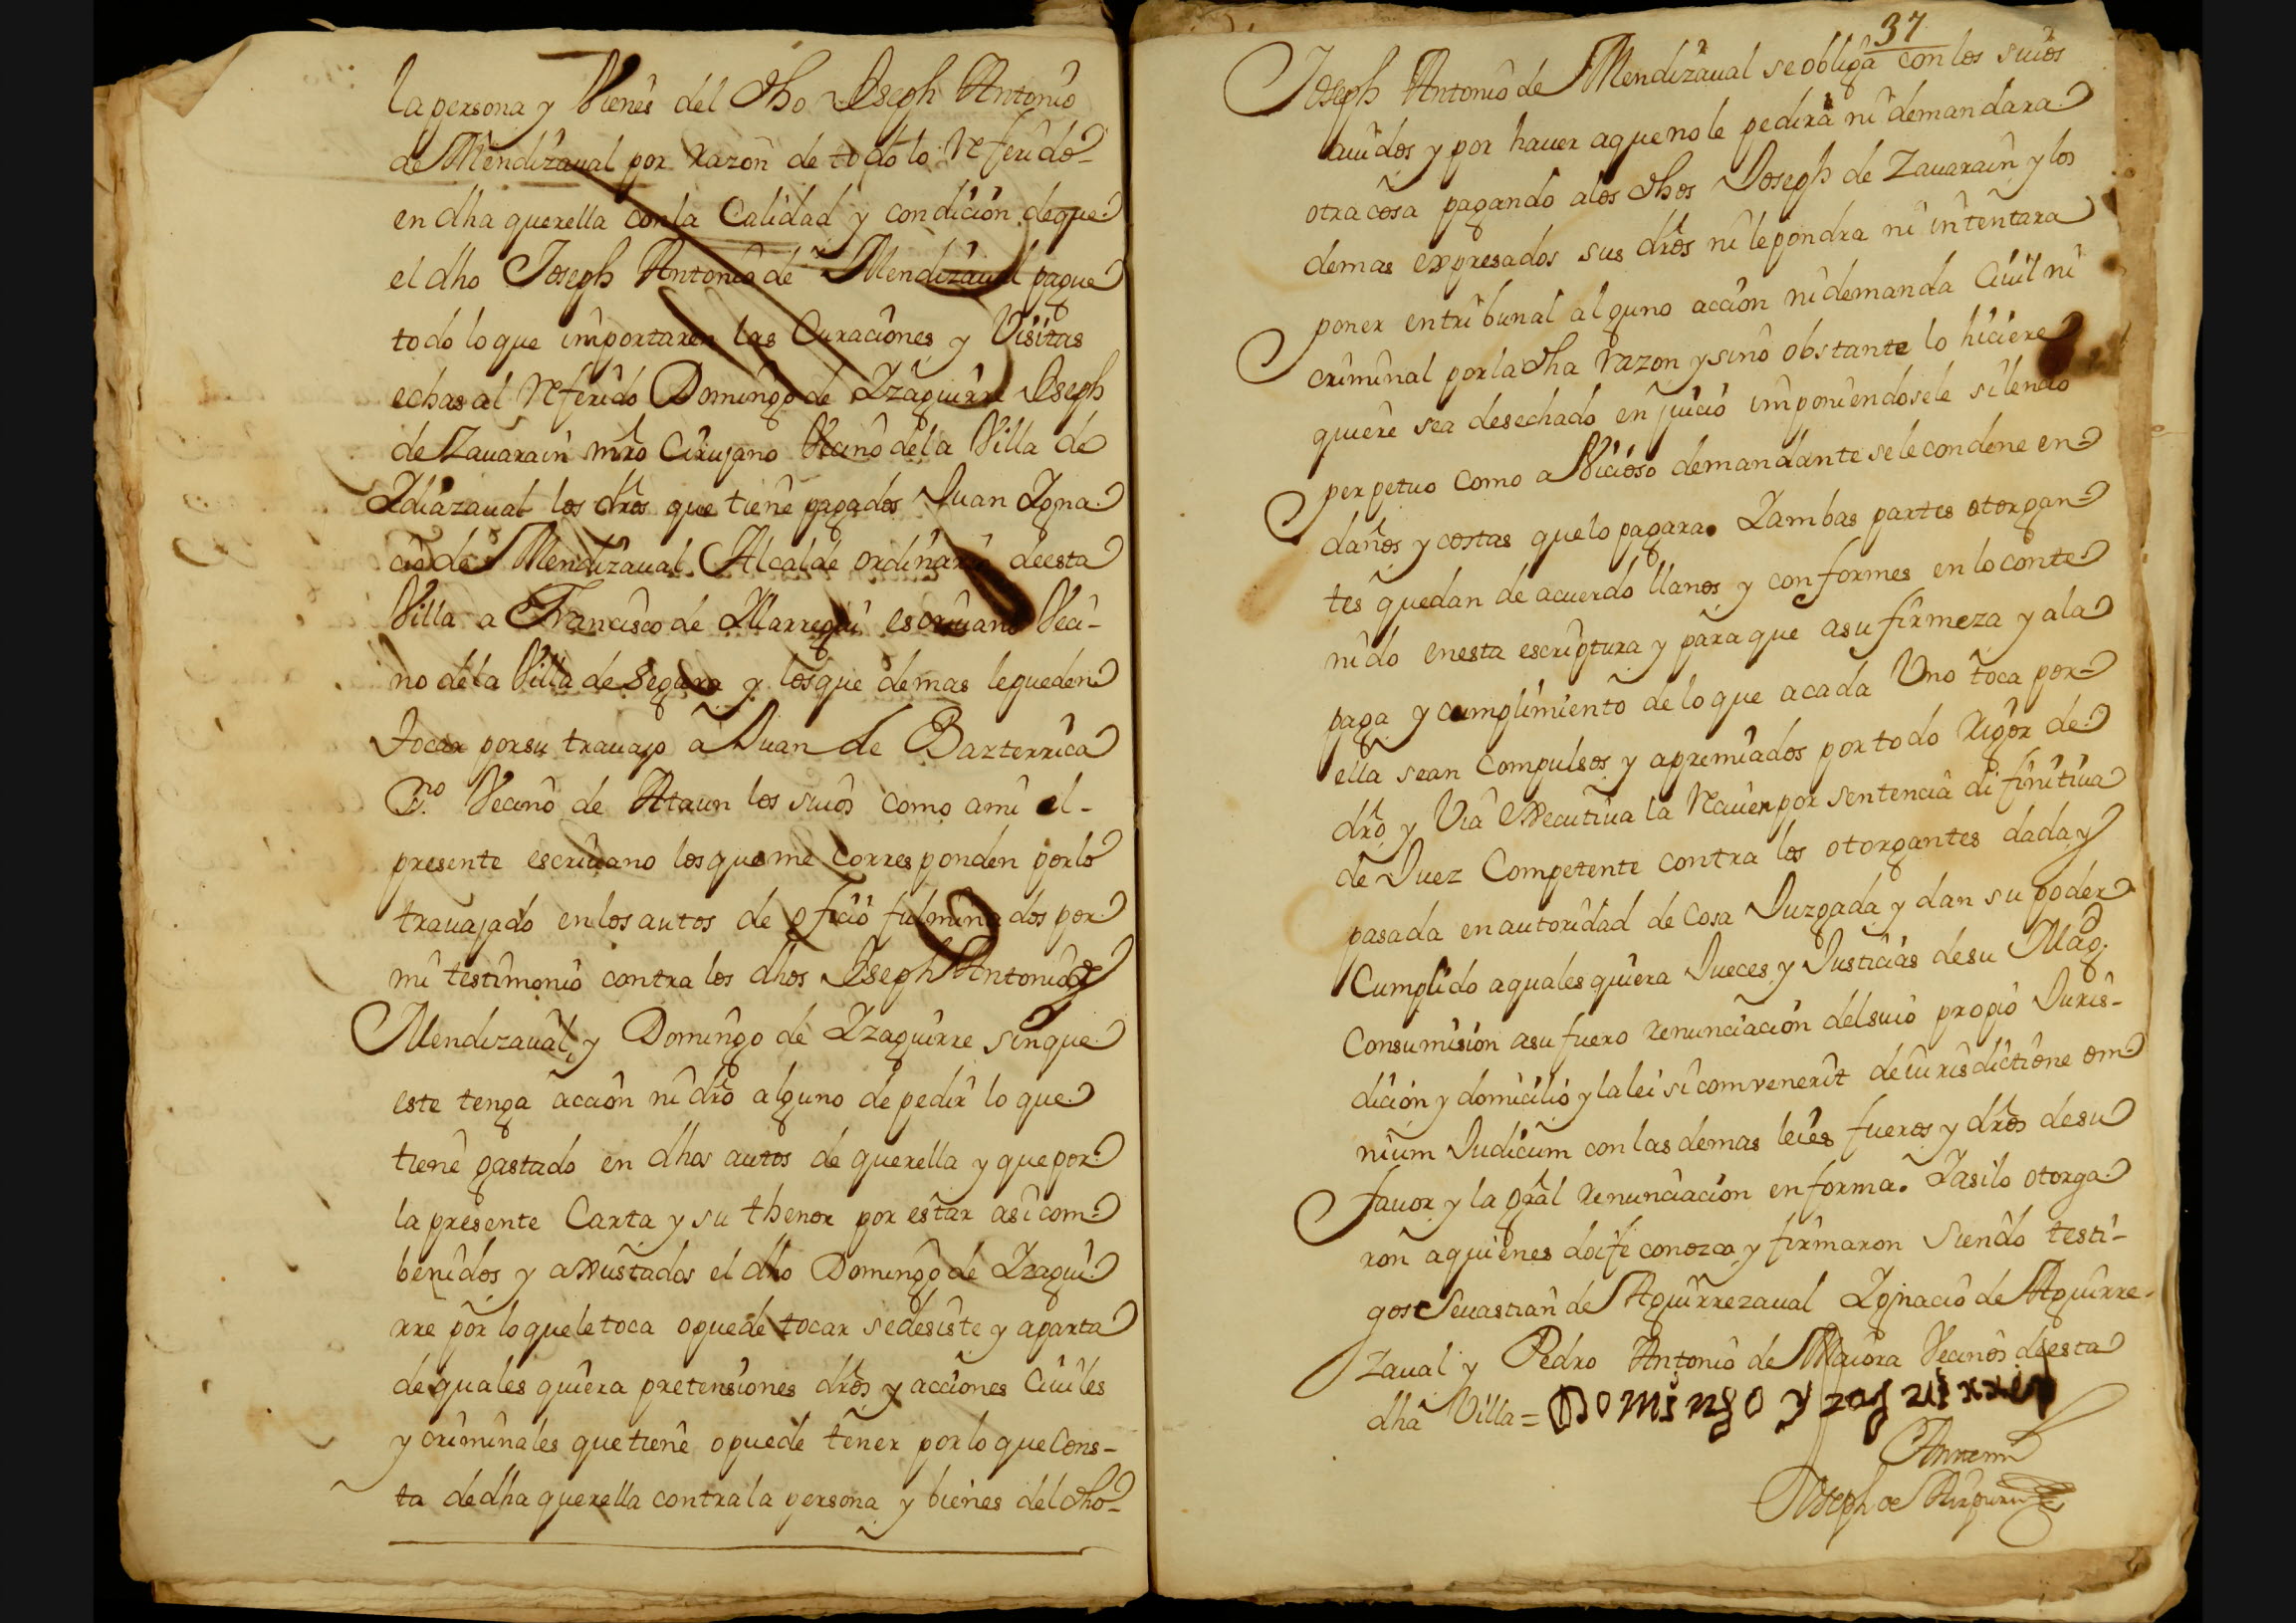 la persona y Vienes del dho Joseph Antonio
de Mendizaual por razon de todo lo referido
en dha querella con la Calidad y condicion de que
el dho Joseph Antonio de Mendizaual pague
todo lo que importaren las Curaciones y Visitas
echas al referido Domingo de Yzaguirre Joseph
de Zauarain mro Cirujano Vecino de la Villa de
Ydiazaual los dros que tiene pagados Juan Ygna
cio de Mendizaual Alcalde ordinario de esta
Villa a Francisco de Yllarregui escriuano Veci-
no de la Villa de Segura y los que demas le pueden
tocar por su trauajo a Juan de Bazterrica
Vecino de Ataun los suios como a mi el-
presente escriuano los que me corresponden por lo
trauajado en los autos de oficio fulminados por
mi testimonio contra los dhos Joseph Antonio de
Mendizaual, y Domingo de Yzaguirre sin que
este tenga accion ni dro alguno de pedir lo que
tiene gastado en dhos autos de querella y que por
la presente Carta y su thenor por estar asi com
benidos y axustados el dho Domingo de Yzagui
rre por lo que le toca o puede tocar se desiste y aparta
de quales quiera pretensiones dros y acciones Ciuiles
y criminales que tiene o puede tener por lo que Cons-
ta de dha querella contra la persona y bienes del dho-
37
Joseph Antonio de Mendizaual se obliga con los suios
auidos y por hauer a que no le pedira ni demandara
otra cosa pagando a los dhos Joseph de Zauarain y los
demas expresados sus dros ni le pondra ni intentara
poner en tribunal alguno accion ni demanda Ciuil ni
criminal por la dha razon y sino obstante lo hiciere
quiere sea desechado en juicio imponiendosele silencio
perpetuo como a Vicioso demandante se le condene en
daños y costas que lo pagara. Y ambas partes otorgan
tes quedan de acuerdo llanos y conformes en lo conte
nido en esta escriptura y para que a su firmeza y a la
paga y cumplimiento de lo que a cada Uno toca por
ella sean Compulsos y apremiados por todo rigor de
dro y Via executiua la reciuen por sentencia difinitiua
de Juez Competente contra los otorgantes dada y
pasada en autoridad de Cosa Juzgada y dan su poder
Cumplido a quales quiera Jueces y Justicias de su Magd.
Con sumision a su fuero renunciacion del suio propio Juris-
dicion y domicilio y la lei si comvenerit de iurisdictione om
nium Judicum con las demas leies fueros y dros de su
fauor y la gral renunciacion en forma. Y asi lo otorga
ron a quienes doi fe conozco y firmaron siendo testi-
gos Seuastian de Aguirrezaual Ygnacio de Aguirre-
zaual y Pedro Antonio de Maiora Vecinos de esta
dha Villa = Domingo yzaguirre
Ante mi
Joseph de Aizpuru